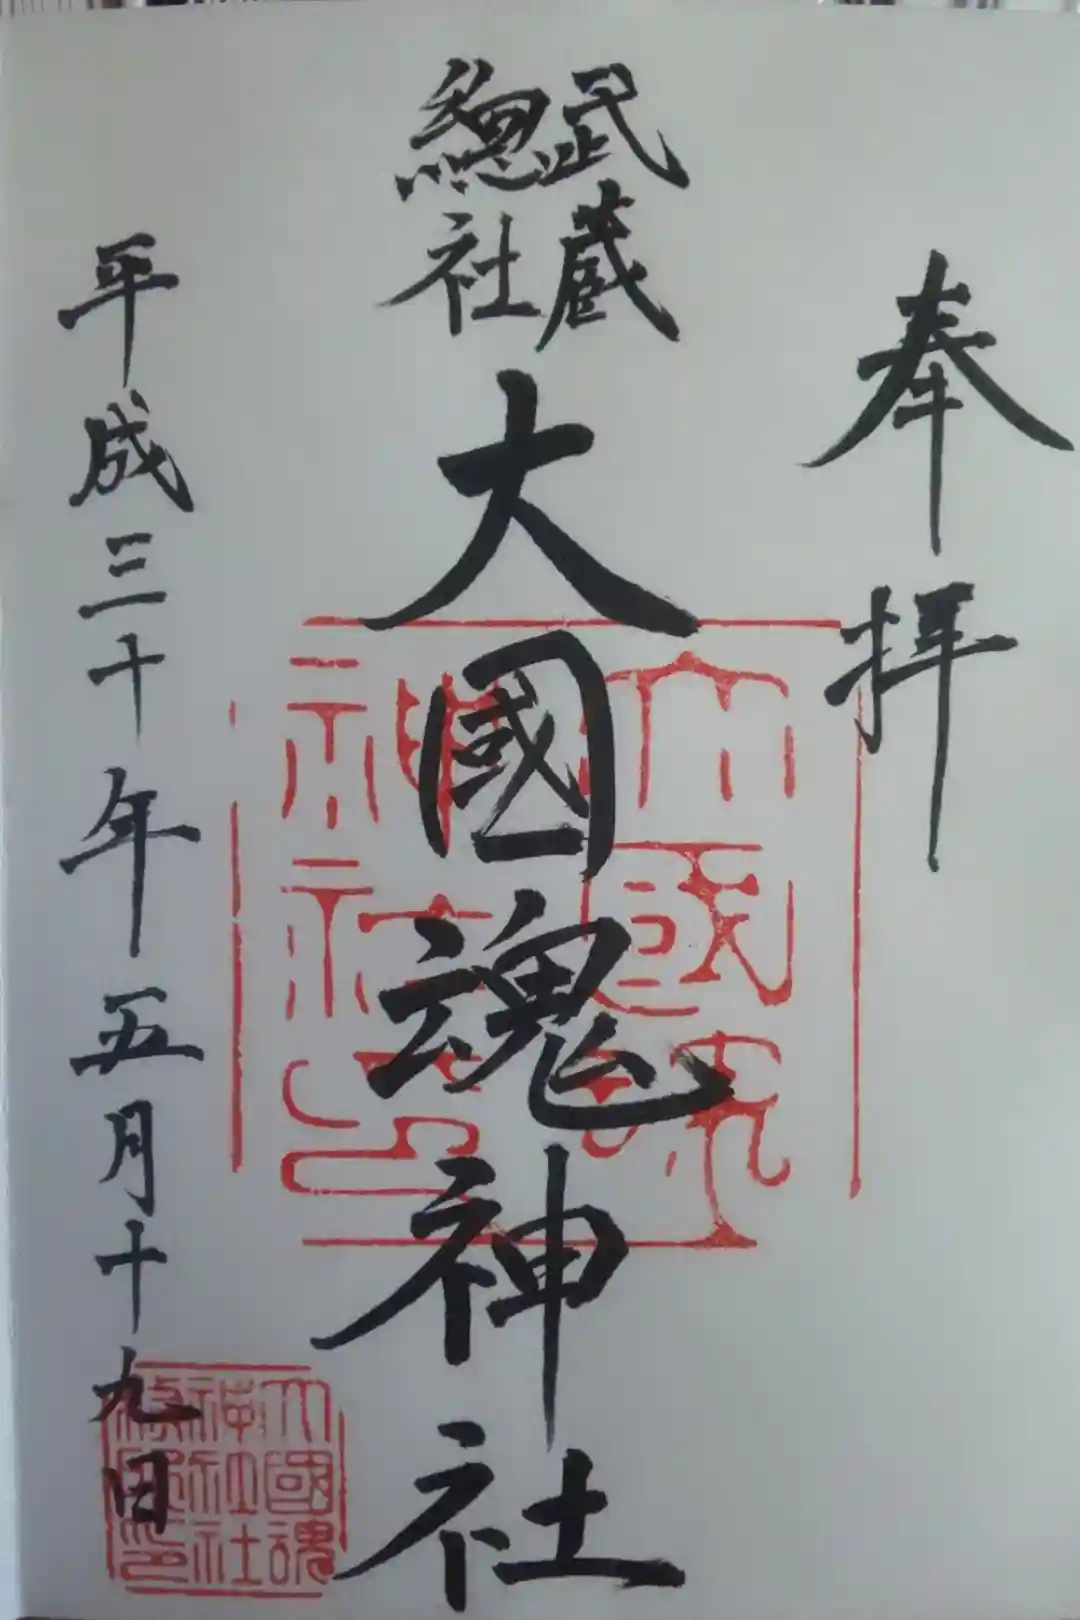 奉拝
武蔵
總社
大國魂神社
平成三十年五月十九日
大國魂
神社印
大國魂
神社社
務所印